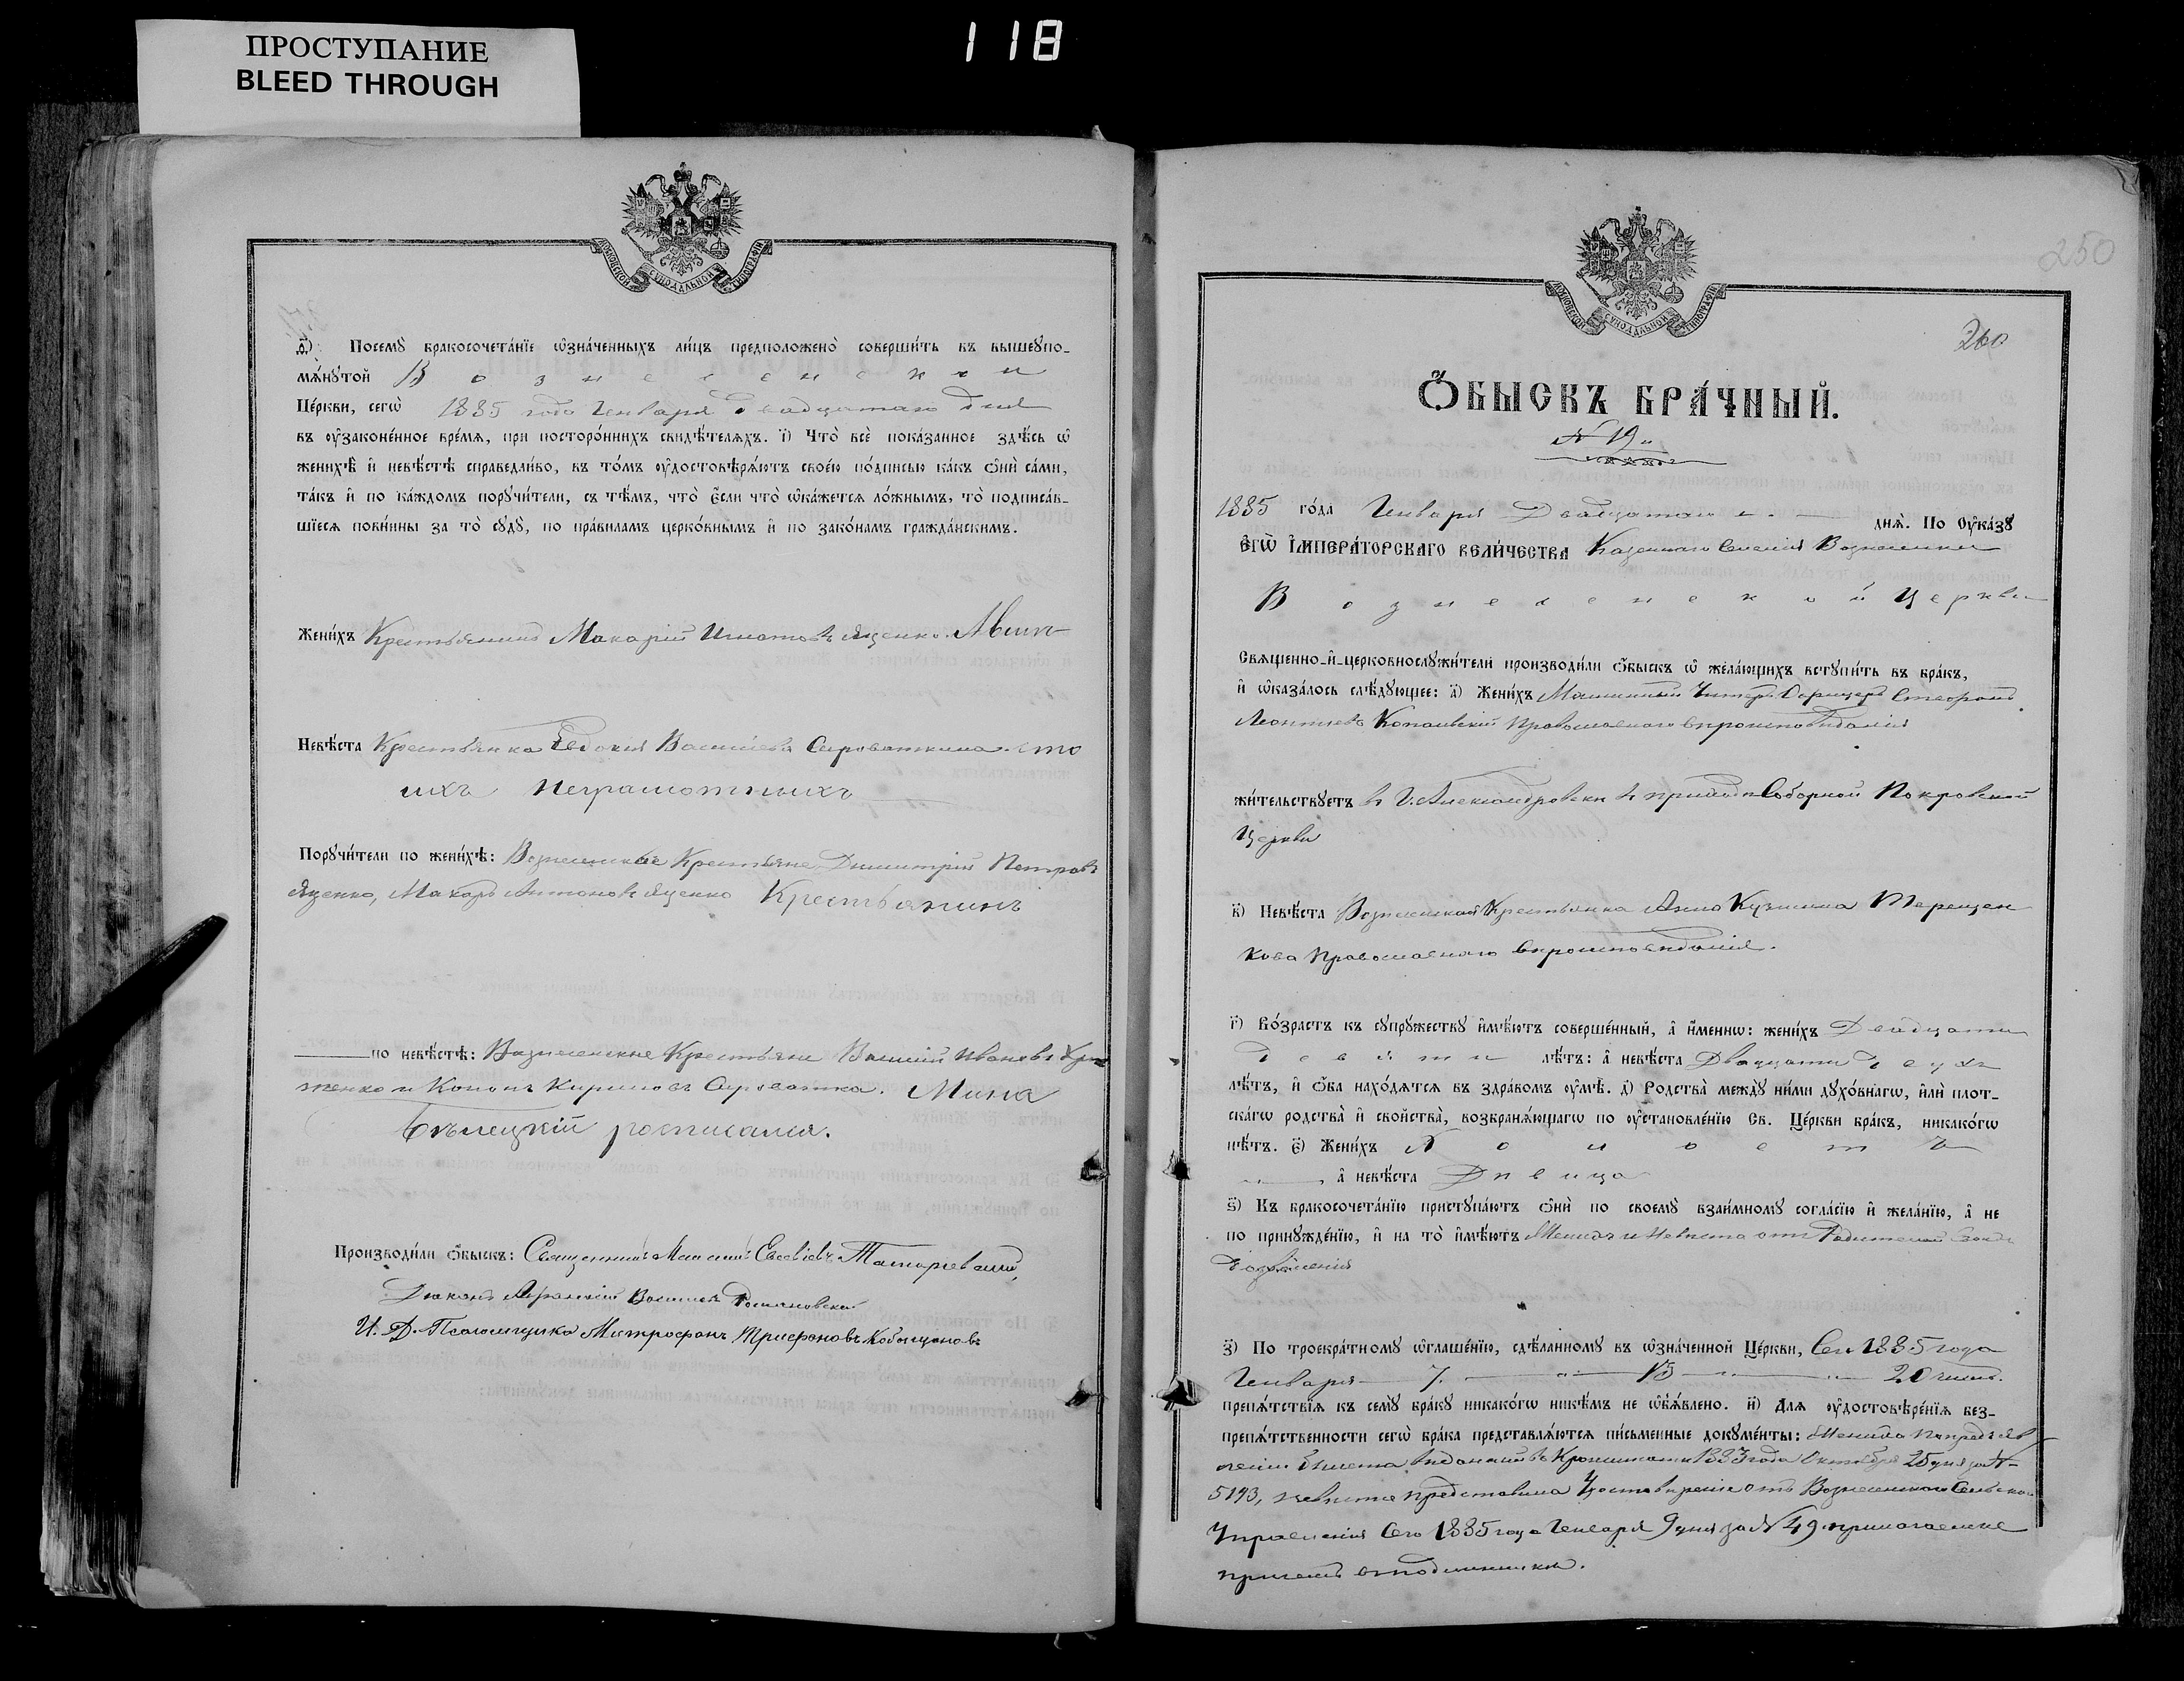 118
ПРОСТУПАНИЕ
BLEED THROUGH
МОСКОВСКОЙ СѴНОДАЛЬНОЙ ТИПОГРАФІИ
ѳ҃) Посемꙋ̀ бракосочета́нїе ѡ҆зна́ченныхъ ли́цъ предположено̀ соверши́ть въ вышеꙋпо-
мѧ́нꙋтой Вознесенской
Це́ркви, сегѡ̀ 1885 года Генваря двадцатаго дня
въ ᲂу҆зако́не́нное вре́мѧ, при посторо́ннихъ свидѣ́телѧхъ. і҃) Что̀ всѐ пока́занное здѣ́сь ѡ҆
женихѣ̀ и҆ невѣ́стѣ справедли́во, въ то́мъ ᲂу҆достовѣрѧ́ютъ свое́ю по́дписью ка́къ ѻ҆нѝ са́ми,
та́къ и҆ по ка́ждомъ порꙋчи́тели, съ тѣ́мъ, что̀ є҆́сли что̀ ѡ҆ка́жетсѧ ло́жнымъ, то̀ подписа́в-
шїесѧ пови́нны за то̀ сꙋдꙋ̀, по пра́виламъ церко́внымъ и҆ по зако́намъ гражда́нскимъ.
Жени́хъ Крестьянинъ Макарій Игнатовъ Яценко.
Невѣ́ста Крестьянка Евдокия Васильева Сыроваткина.
ихъ неграмотныхъ
Порꙋчи́тели по женихѣ̀: Вознесенские Крестьяне Димитрій Петровъ
Яценко, Макаръ Антоновъ Яценко Крестьянинъ
по невѣ́стѣ: Вознесенские Крестьяне Василій Ивановъ
тенко и Кононъ Кириловъ Сыроватка. Мина
Бѣлецкій росписался.
Производи́ли ѻ҆́быскъ: Священникъ
Діаконъ Романовскій
И. Д. Псаломщика Митрофанъ Трифоновъ
250
260
МОСКОВСКОЙ СѴНОДАЛЬНОЙ ТИПОГРАФІИ
Ѻ҆́БЫСКЪ БРА́ЧНЫЙ.
№ 19
1885 го́да Генваря Двадцатаго днѧ̀. По Оу҆ка́зꙋ
Є҆гѡ̀ І҆мпера́торскаго вели́чества Казеннаго Селенія Вознесенки
Вознесенской Церкви
Свѧще́нно-и҆-церковнослꙋжи́тели производи́ли ѻ҆́быскъ ѡ҆ жела́ющихъ встꙋпи́ть въ бра́къ,
и҆ ѡ҆каза́лось слѣ́дꙋющее: а҃) Жени́хъ Машинный Унтеръ Офицеръ Стефанъ
Леонтиевъ Копаевскій Православнаго вѣроисповѣданія
жи́тельствꙋетъ в Г. Александровскѣ в приходѣ Соборной Покровской
Церкви
в҃) Невѣ́ста Вознесенская Крестьянка Анна Кузмина Терещен
кова Православнаго вѣроисповѣданія.
г҃) Во́зрастъ къ сꙋпрꙋ́жествꙋ и҆мѣ́ютъ соверше́нный, а҆ и҆́меннѡ: жени́хъ Двадцати
девяти лѣ́тъ: а҆ невѣ́ста Двадцати двухъ
лѣ́тъ, и҆ ѻ҆́ба нахо́дѧтсѧ въ здра́вомъ ᲂу҆мѣ̀. д҃) Родства̀ междꙋ̀ ни́ми дꙋхо́внагѡ, и҆лѝ плот-
ска́гѡ родства̀ и҆ свойства̀, возбранѧ́ющагѡ по ᲂу҆становле́нїю Св. Це́ркви бра́къ, никако́гѡ
нѣ́тъ. є҃) Жени́хъ Холостъ
а҆ невѣ́ста Дѣвица
ѕ҃) Къ бракосочета́нїю пристꙋпа́ютъ ѻ҆нѝ по своемꙋ̀ взаи́мномꙋ согла́сїю и҆ жела́нїю, а҆ не
по принꙋжде́нїю, и҆ на то̀ и҆мѣ́ютъ Женихъ и Невѣста отъ Родителей своихъ
дозволенія
з҃) По троекра́тномꙋ ѡ҆глаше́нїю, сдѣ́ланномꙋ въ ѡ҆зна́ченной Це́ркви, Сего 1885 года
Генваря 7. 13 20 чиселъ.
препѧ́тствїѧ къ семꙋ̀ бра́кꙋ никако́гѡ никѣ́мъ не ѡ҆б̾ѧ́влено. и҃) Длѧ ᲂу҆достовѣре́нїѧ без-
препѧ́тственности сегѡ̀ бра́ка представлѧ́ютсѧ пи́сьменные докꙋме́нты: Жениха по предъяв
леніи билета виданий въ Кронштатѣ 1883 года Октября 25 дня за №
5193, невѣста представила Удостовѣреніе отъ Вознесенскаго Сельскаго
Управленія Сего 1885 года Генваря 9 дня за № 49 прилагаемые
при семъ въ подлинникѣ.